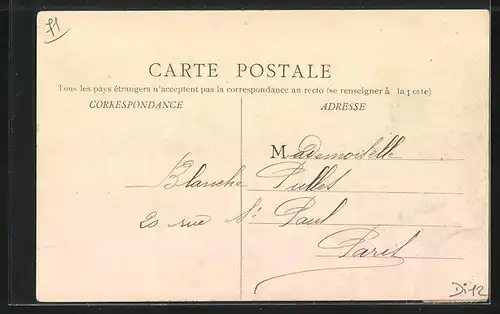 CARTE POSTALE
Tous les pays étrangers n'acceptent pas la correspondance au recto (se renseigner à la poste)
CORRESPONDANCE
ADRESSE
Mademoiselle
Blanche Pullet
20 rue St Paul
Paris